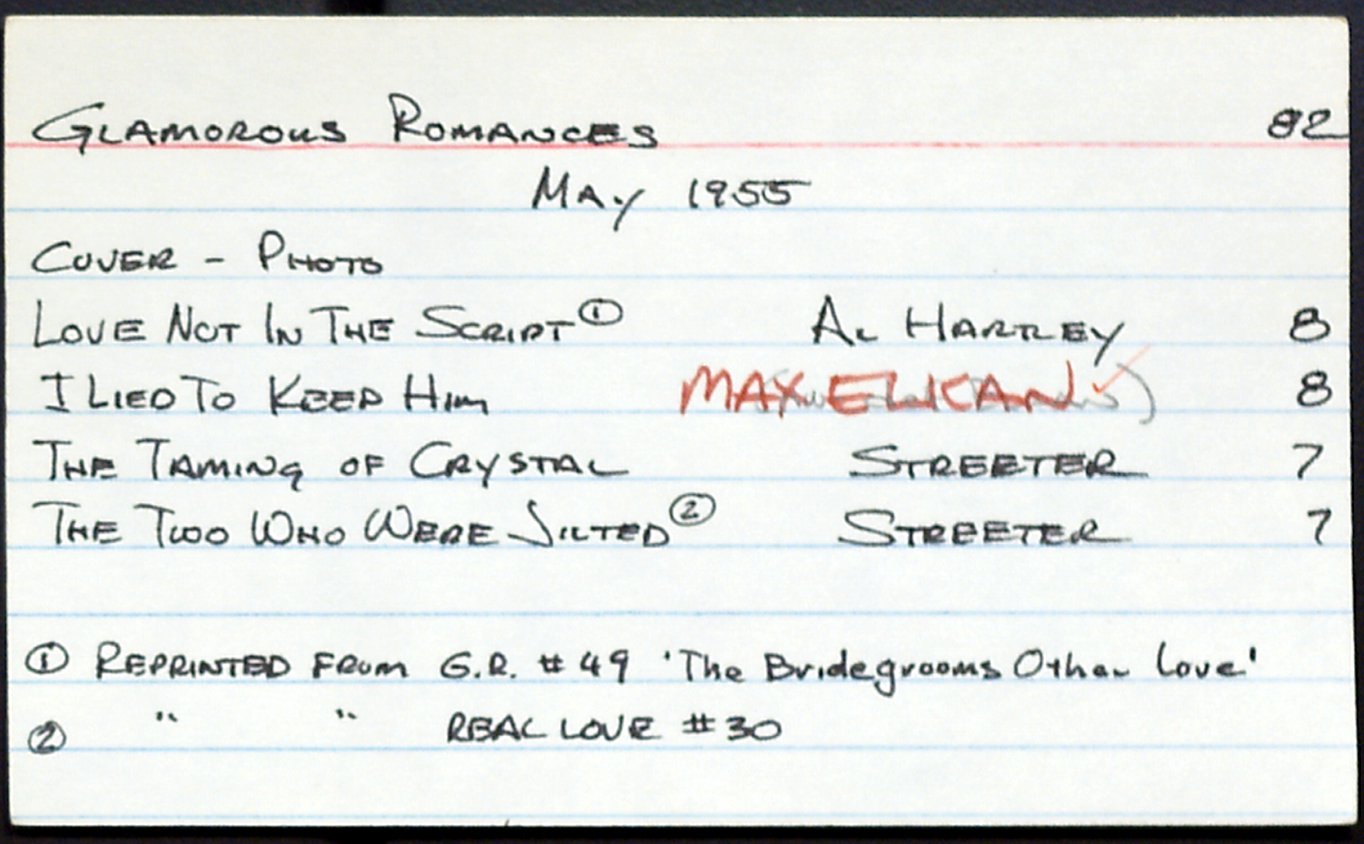 GLAMOROUS ROMANCES 82
MAY 1955
COVER - PHOTO
LOVE NOT IN THE SCRIPT ① AL HARTLEY 8
I LIED TO KEEP HIM MAX ELKAN ✓ ) 8
THE TAMING OF CRYSTAL STREETER 7
THE TWO WHO WERE JILTED ② STREETER 7
① REPRINTED FROM G.R. # 49 'The Bridegrooms Other Love'
② " " REAL LOVE # 30